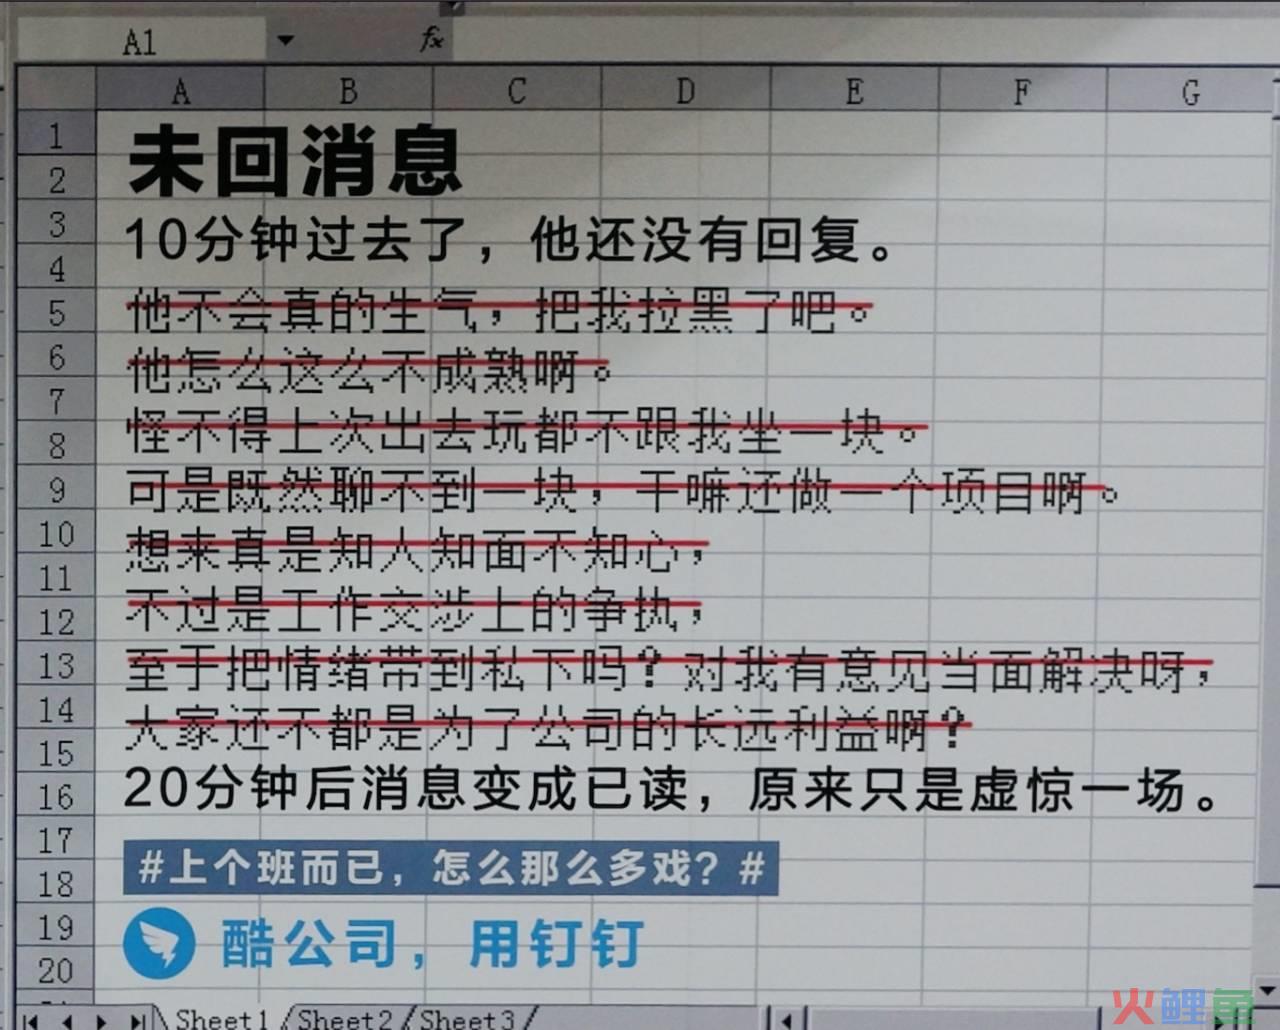 A1
fx
A B C D E F G
1
2
3
4
5
6
7
8
9
10
11
12
13
14
15
16
17
18
19
20
未回消息
10分钟过去了，他还没有回复。
他不会真的生气，把我拉黑了吧。
他怎么这么不成熟啊。
怪不得上次出去玩都不跟我坐一块。
可是既然聊不到一块，干嘛还做一个项目啊。
想来真是知人知面不知心，
不过是工作交涉上的争执，
至于把情绪带到私下吗？对我有意见当面解决呀，
大家还不都是为了公司的长远利益啊？
20分钟后消息变成已读，原来只是虚惊一场。
#上个班而已，怎么那么多戏？#
酷公司，用钉钉
Sheet1 Sheet2 Sheet3
火鲤鱼